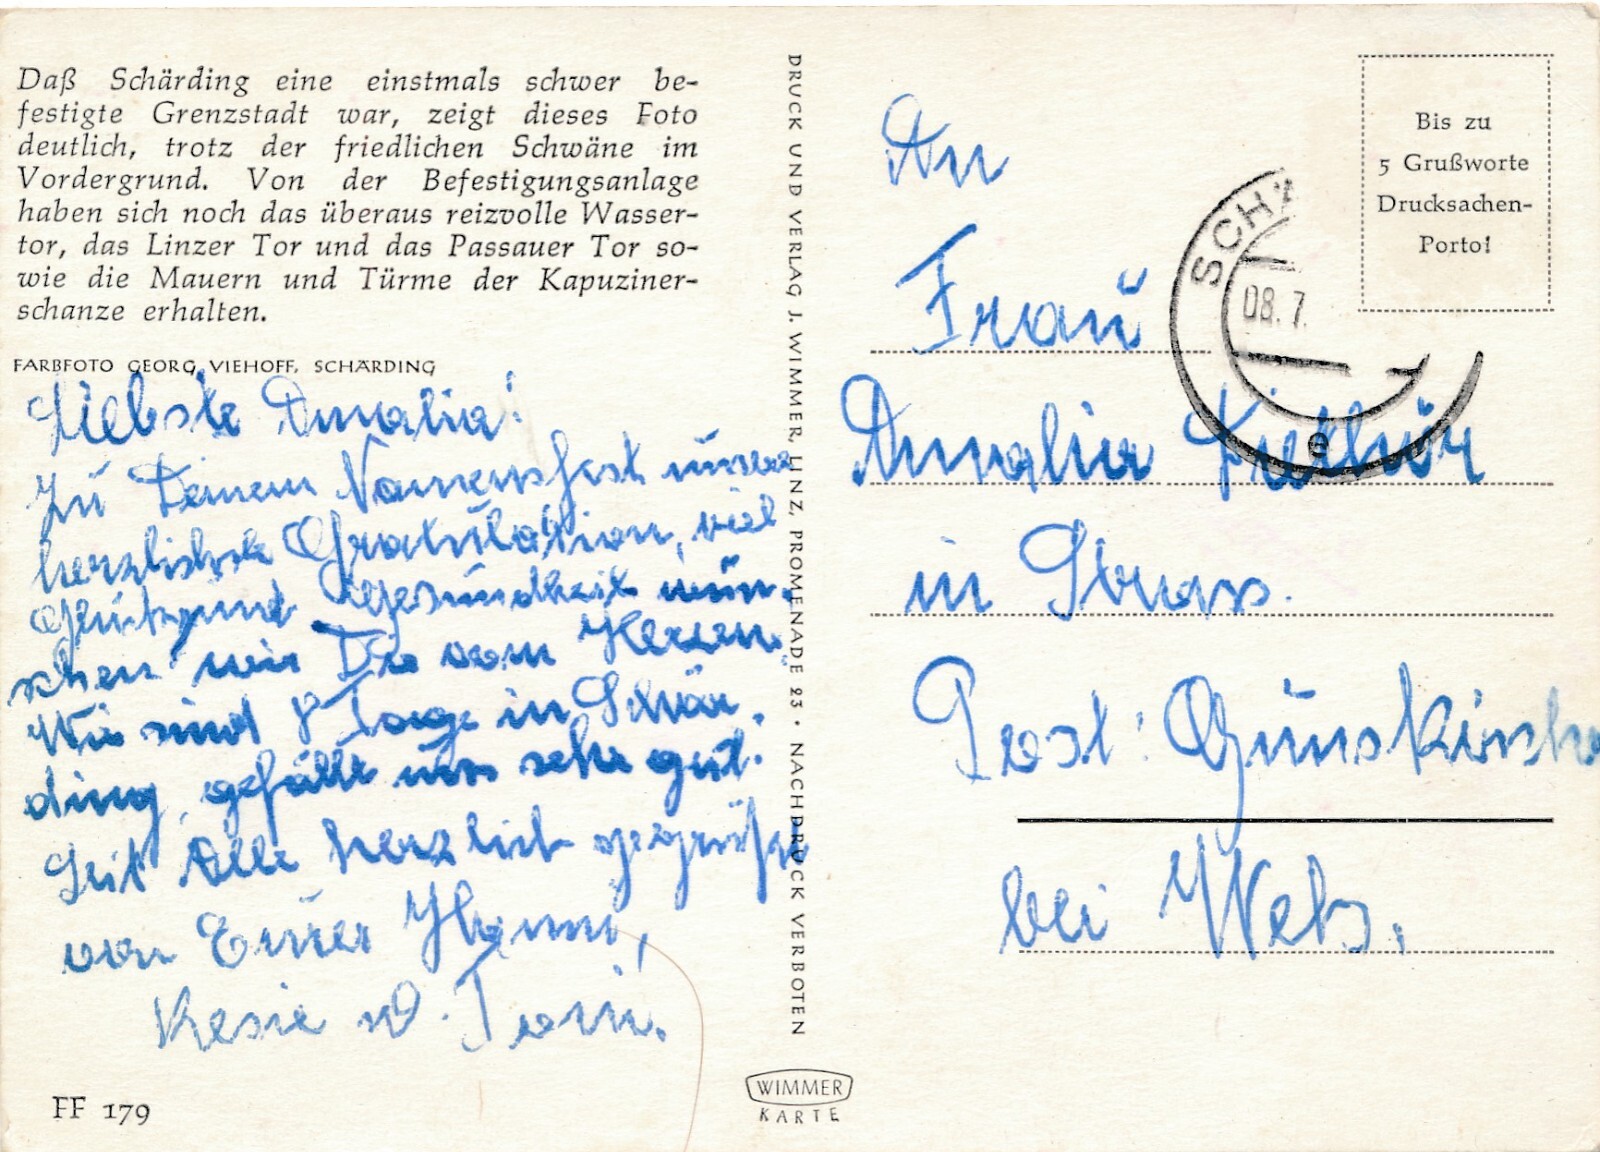 Daß Schärding eine einstmals schwer be-
festigte Grenzstadt war, zeigt dieses Foto
deutlich, trotz der friedlichen Schwäne im
Vordergrund. Von der Befestigungsanlage
haben sich noch das überaus reizvolle Wasser-
tor, das Linzer Tor und das Passauer Tor so-
wie die Mauern und Türme der Kapuziner-
schanze erhalten.
FARBFOTO GEORG VIEHOFF, SCHÄRDING
Liebste Amalia!
Zu Deinem Namensfest unsere
herzlichste Gratulation, viel
Glück und Gesundheit wün-
schen wir Dir vom Herzen.
Wir sind 8 Tage in Schär-
ding, gefällt uns sehr gut.
Seit Alle herzlich gegrüßt
von Eurer
Resie u. Toni.
FF 179
DRUCK UND VERLAG J. WIMMER, LINZ, PROMENADE 23 · NACHDRUCK VERBOTEN
WIMMER
KARTE
Bis zu
5 Grußworte
Drucksachen-
Porto!
SCHÄ
08. 7.
e
An
Frau
Amalia
in
Post: Gunskirchen
bei Wels.